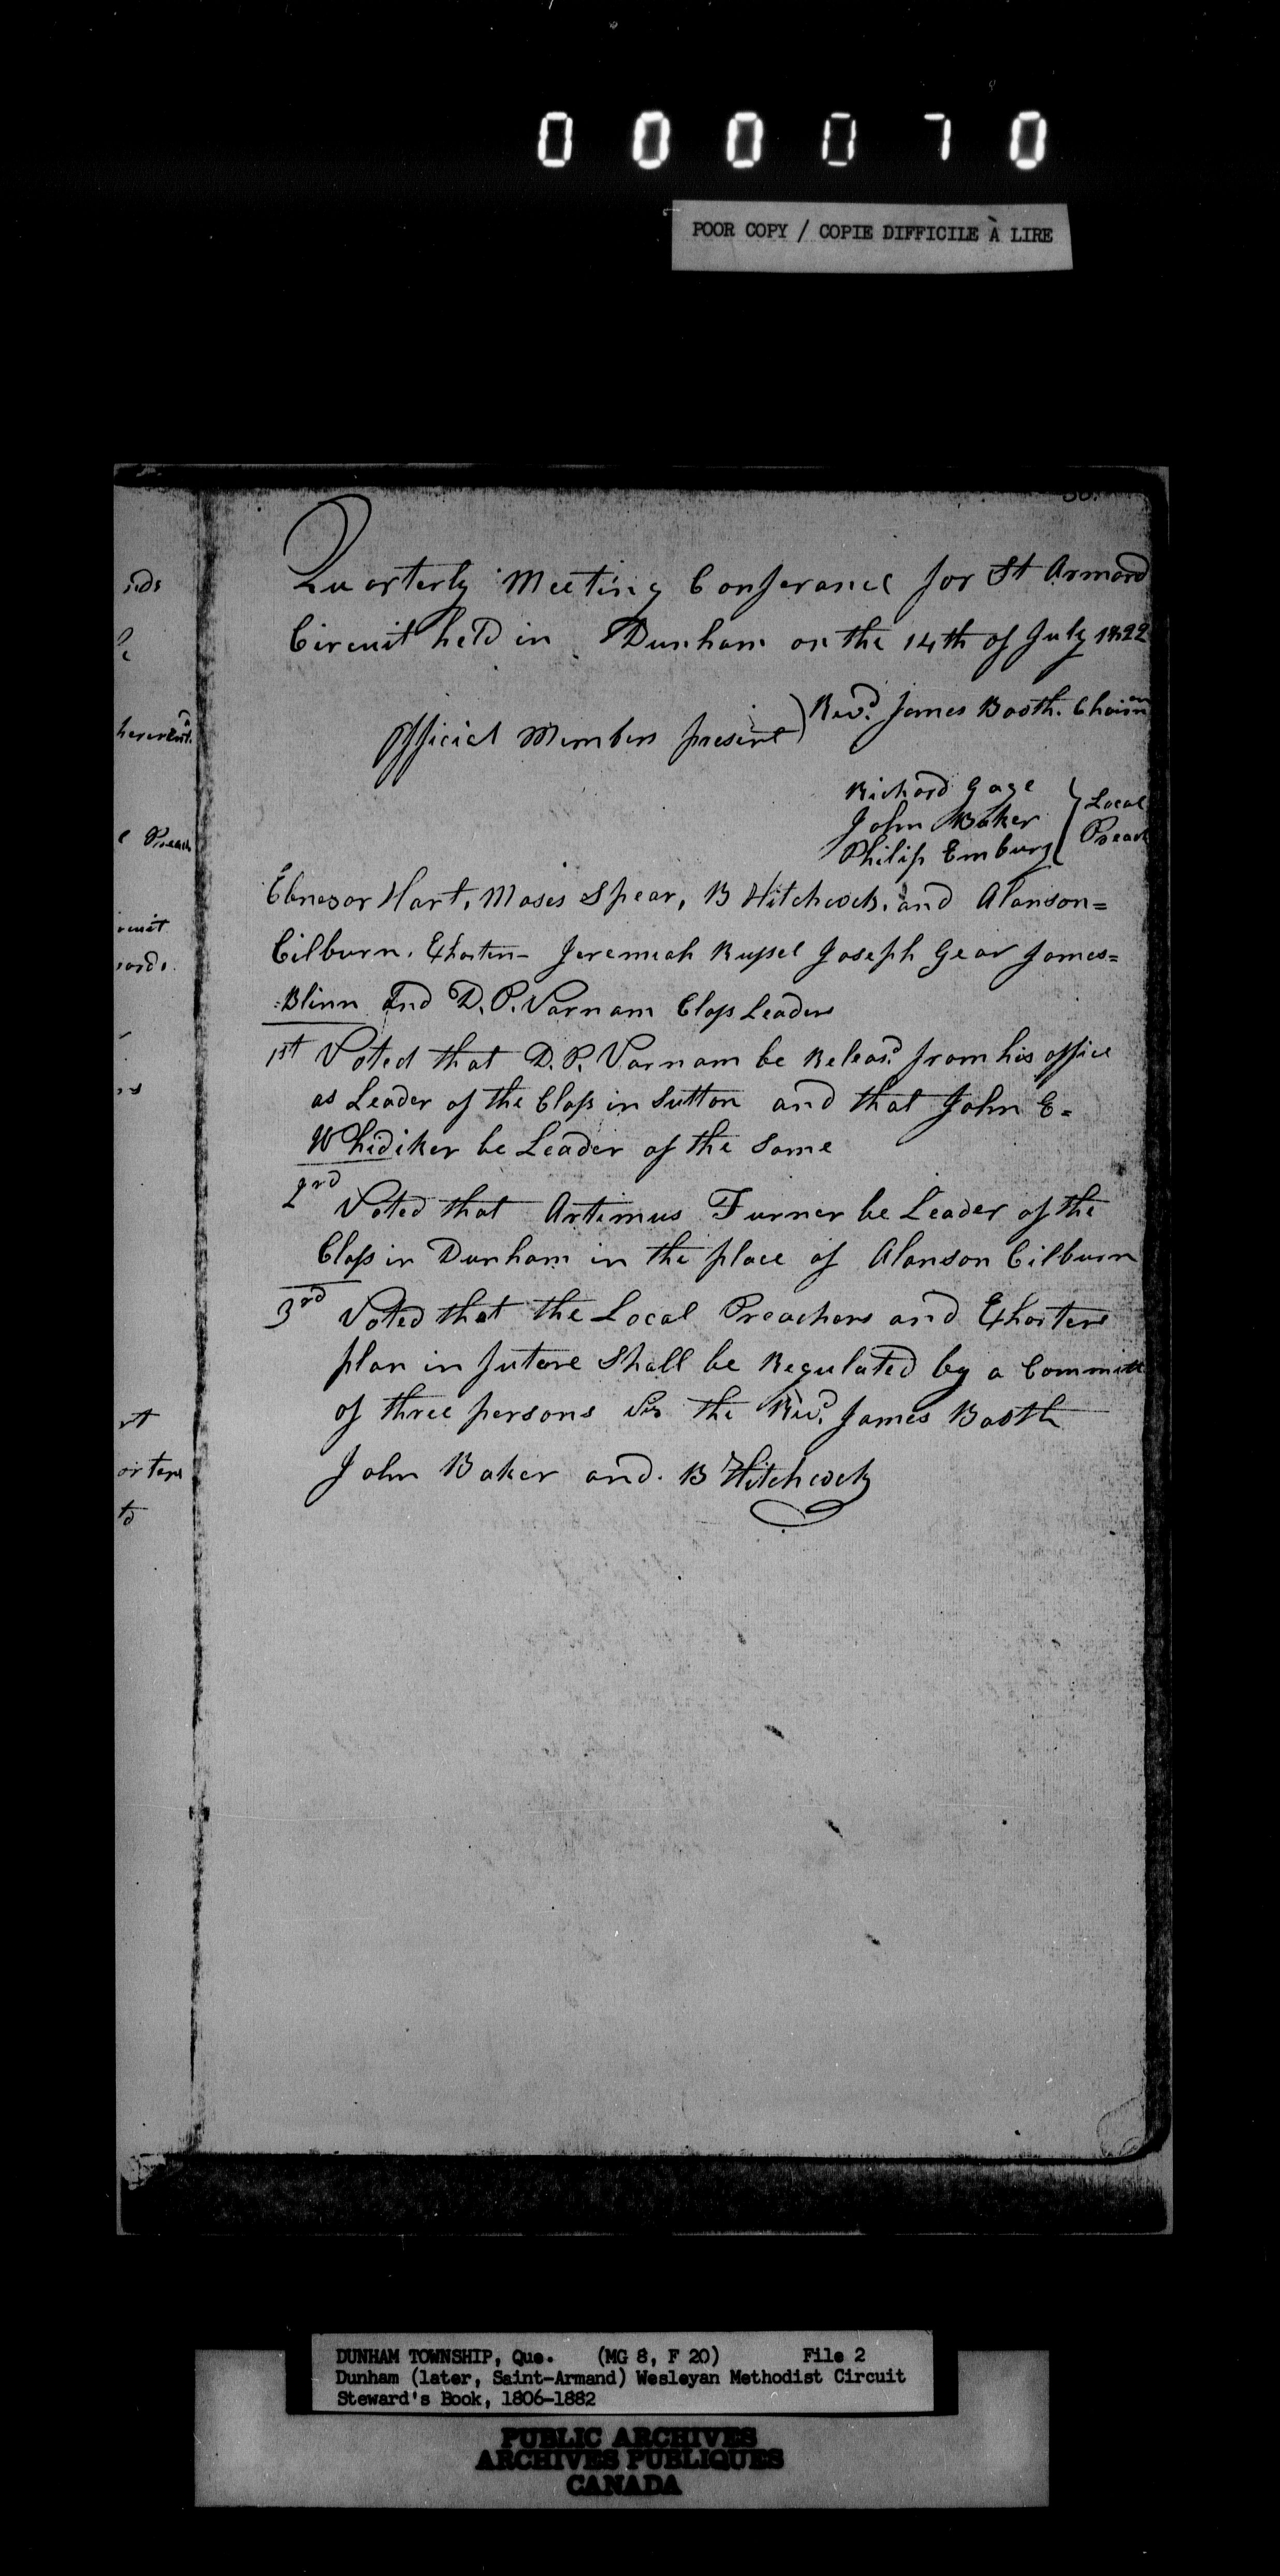 000070
POOR COPY / COPIE DIFFICILE À LIRE
Quarterly Meeting Conferance for St Armand
Circuit held in Dunham on the 14th of July 1822
Official Members present) Revd. James Booth. Chairmn
Richard Gage
John Baker } Local
Philip Embury Preach
Ebenezor Hart, Moses Spear, B Hitchcock, and Alanson=
Cilburn. Exhorters- Jeremiah Russel Joseph Gear James=
Blinn and D. P. Varnam Class Leaders
1st Voted that D. P. Varnam be Releasd from his office
as Leader of the Class in Sutton and that John E=
Whidiker be Leader of the Same
2nd Voted that Artimus Turner be Leader of the
Class in Dunham in the place of Alanson Cilburn
3rd Voted that the Local Preachers and Exhorters
plan in future Shall be Regulated by a Committ
of three persons the Revd. James Booth
John Baker and. B Hitchcock
Preach
DUNHAM TOWNSHIP, Que. (MG 8, F 20) File 2
Dunham (later, Saint-Armand) Wesleyan Methodist Circuit
Steward's Book, 1806-1882
PUBLIC ARCHIVES
ARCHIVES PUBLIQUES
CANADA